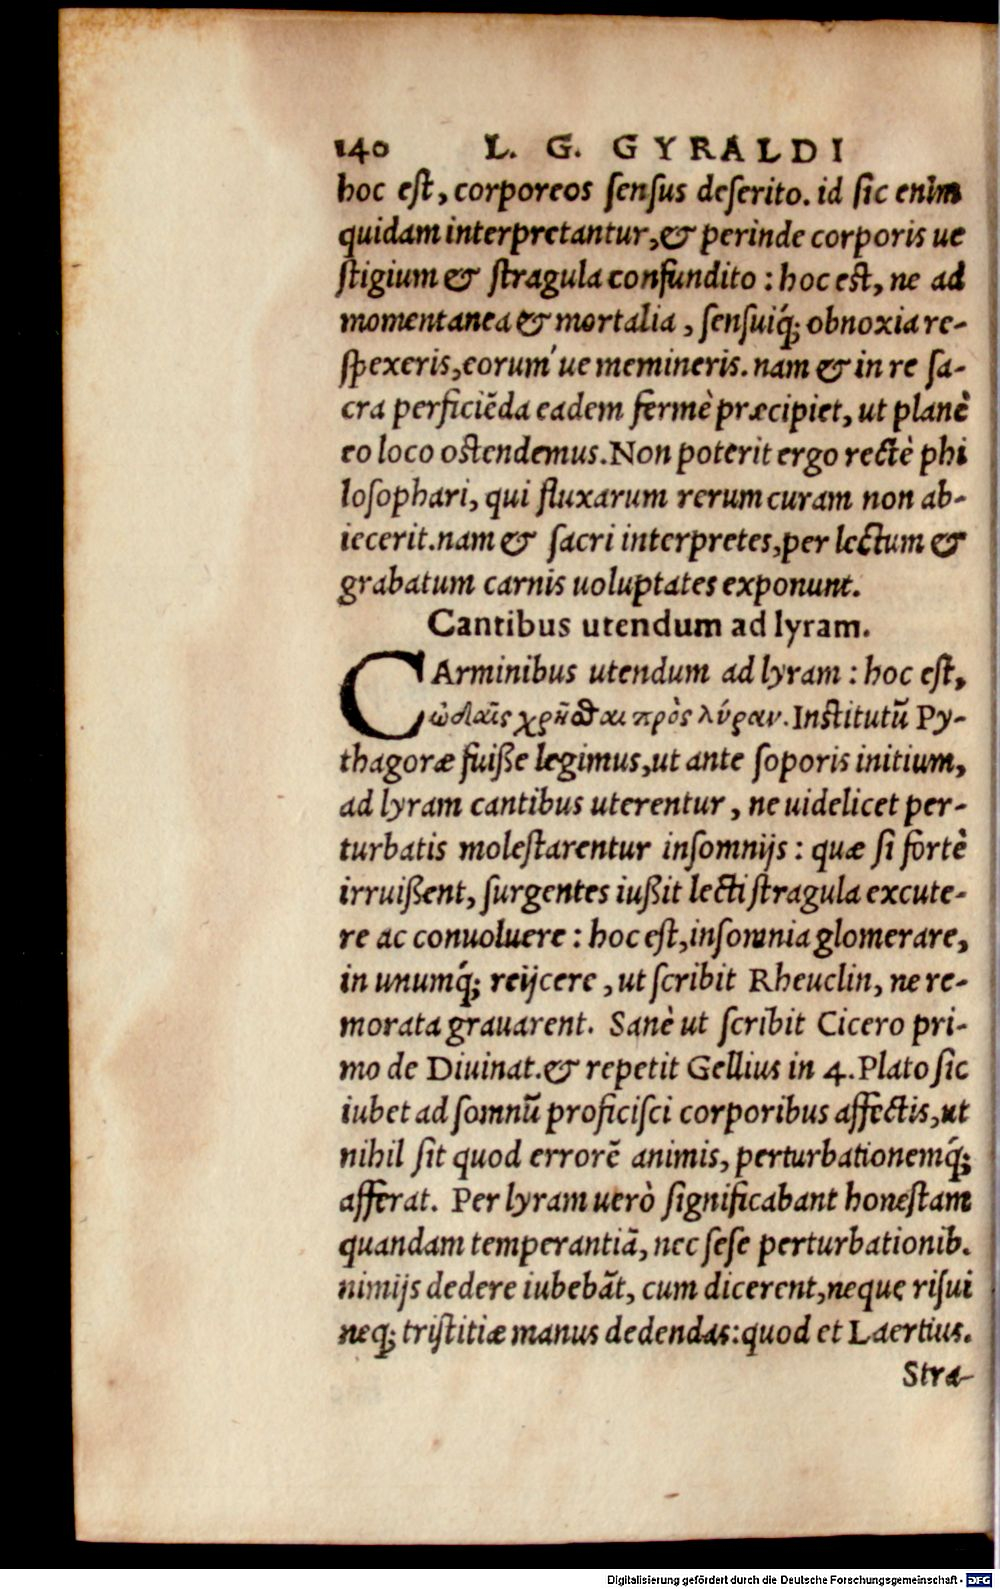 140 L. G. GYRALDI
hoc est, corporeos sensus deserito. id sic enim
quidam interpretantur, & perinde corporis ue
stigium & stragula confundito : hoc est, ne ad
momentanea & mortalia , sensuiq́; obnoxia re-
spexeris, eorum´ue memineris. nam & in re sa-
cra perficiẽda eadem fermè præcipiet, ut planè
eo loco ostendemus. Non poterit ergo rectè phi
losophari, qui fluxarum rerum curam non ab-
iecerit. nam & sacri interpretes, per lectum &
grabatum carnis uoluptates exponunt.
Cantibus utendum ad lyram.
CArminibus utendum ad lyram : hoc est,
ᾠδαῖς χρῆσθαι πρὸς λύραν. Institutũ Py-
thagoræ fuiße legimus, ut ante soporis initium,
ad lyram cantibus uterentur , ne uidelicet per-
turbatis molestarentur insomnijs : quæ si fortè
irruißent, surgentes iußit lecti stragula excute-
re ac conuoluere : hoc est, insomnia glomerare,
in unumq́; reijcere , ut scribit Rheuclin, ne re-
morata grauarent. Sanè ut scribit Cicero pri-
mo de Diuinat. & repetit Gellius in 4. Plato sic
iubet ad somnũ proficisci corporibus affectis, ut
nihil sit quod errorẽ animis, perturbationemq́;
afferat. Per lyram uerò significabant honestam
quandam temperantiã, nec sese perturbationib.
nimijs dedere iubebãt, cum dicerent, neque risui
neq; tristitiæ manus dedendas: quod et Laertius.
Stra-
Digitalisierung gefördert durch die Deutsche Forschungsgemeinschaft - DFG